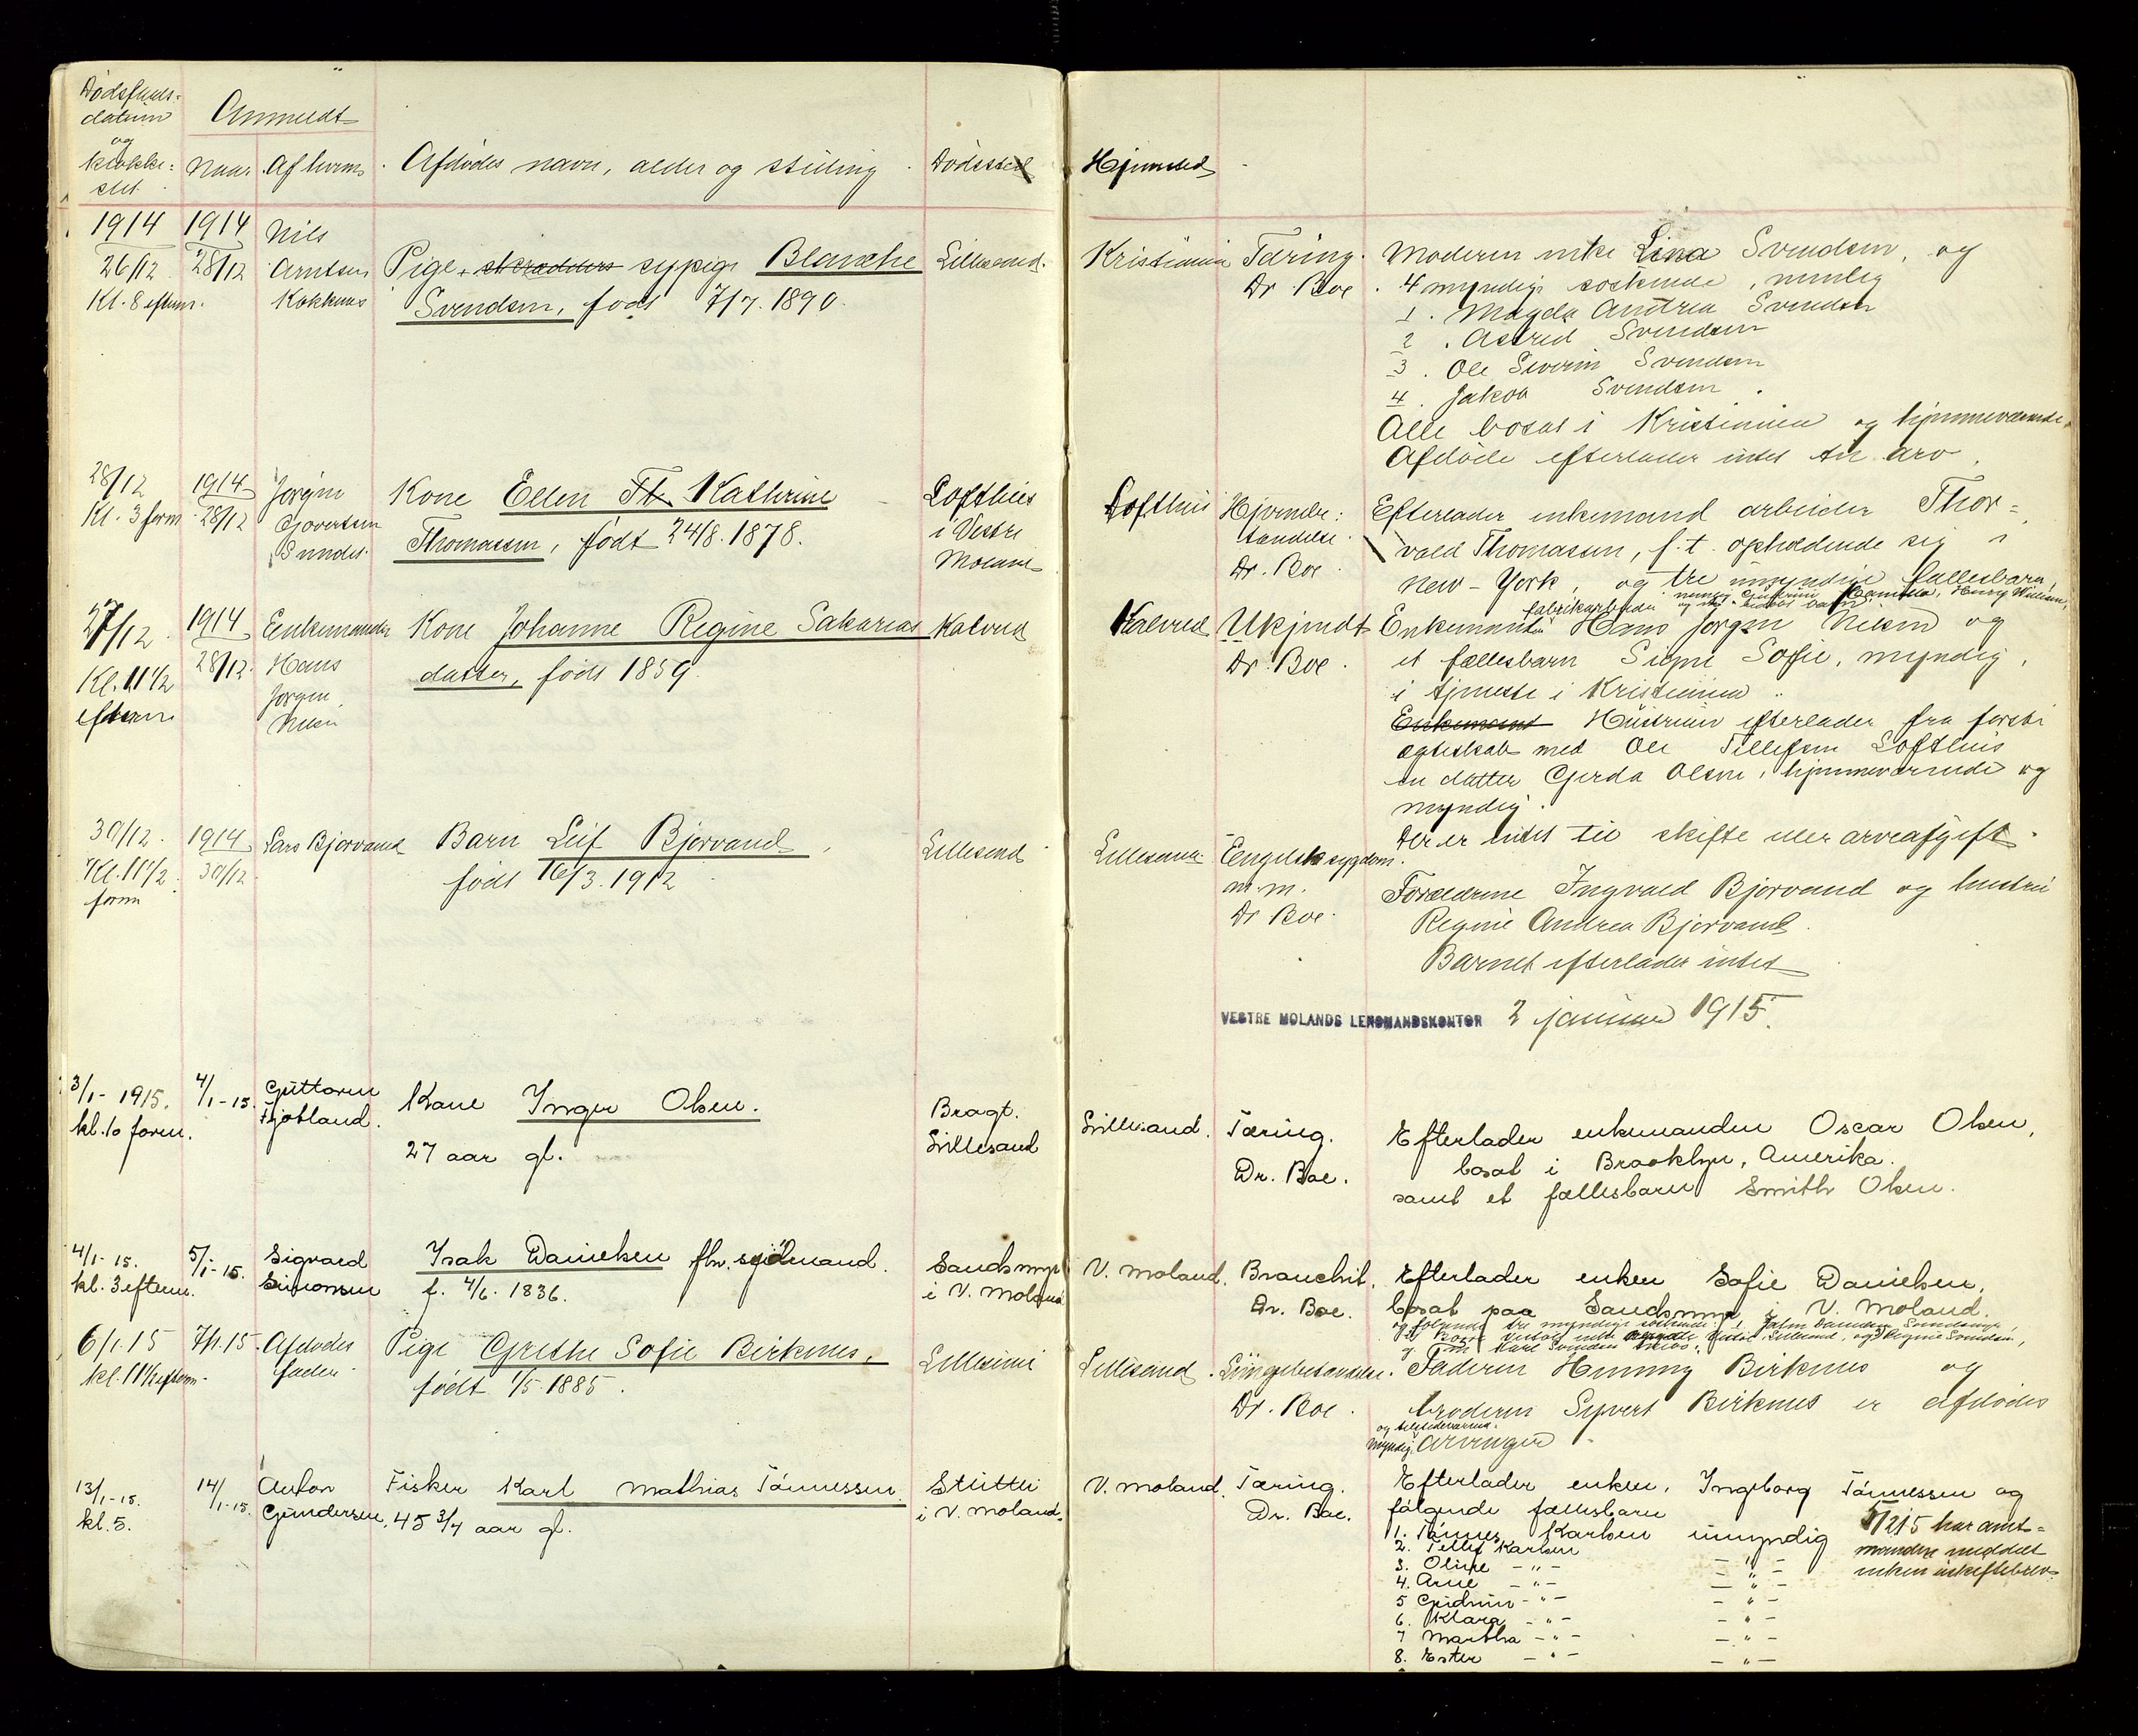 Dødsfalds-
datum
og
klokke-
slet
Anmeldt
Naar
Af hvem
Afdødes navn, alder og stilling
Dødssted
Hjemsted
1914
26/12
Kl. 8 efterm.
1914
28/12
Nils
Arntsen
Kokknes
Pige, skrædders sypige Blanche
Svendsen, født 7/7. 1890.
Lillesand.
Kristiania
Tæring.
Dr. Boe.
Moderen enke Lina Svendsen, og
4 myndige søskende, nemlig
1. Magda Amtrea Svendsen
2. Astrid Svendsen
3. Ole Severin Svendsen
4. Jakob Svendsen.
Alle bosat i Kristiania og hjemmeværende.
Afdøde efterlader intet til arv.
28/12
Kl. 3 form
1914
28/12
Jørgen
Govertsen
Sundet.
Kone Ellen Th. Kathrine
Thomassen, født 24/8. 1878.
Lofthus
i Vestre
Moland
Lofthus
Hjernebe:
tændelse.
Dr. Boe.
Efterlader enkemand arbeider Thor=
vald Thomassen, f. t. opholdende sig i
New-York, og tre umyndige fællesbarn,
27/12.
Kl. 11 1/2
efterm
1914
28/12.
Enkemanden
Hans
Jørgen
Nilsen
Kone Johanne Regine Sakarias
datter, født 1859.
Kalvød
Kalvød
Ukjendt
Dr. Boe.
fabrikarbeider
Enkemanden Hans Jørgen Nilsen og
et fællesbarn Signe Sofie, myndig,
i tjeneste i Kristiania.
Enkemand Hustruen efterlader fra første
ægteskab med Ole Tellefsen Lofthus
en datter Gerda Olsen, hjemmeværende og
myndig.
Der er intet til skifte eller arveafgift.
30/12.
Kl. 11 1/2
form
1914
30/12
Lars Bjorvand
Barn Leif Bjorvand,
født 16/3. 1912
Lillesand
Lillesand.
Engelsk sygdom.
m. m.
Dr Boe.
Forældrene Ingvald Bjorvand og hustru
Regine Andrea Bjorvand.
Barnet efterlader intet
VESTRE MOLANDS LENSMANDSKONTOR 2 januar 1915.
3/1-1915.
kl. 10 form.
4/1-15.
Guttorm
Fjotland.
Kone Inger Olsen.
27 aar gl.
Bragt.
Lillesand
Lillesand.
Tæring.
Dr. Boe.
Efterlader enkemanden Oscar Olsen,
bosat i Brooklyn, Amerika.
samt et fællesbarn Smith Olsen.
4/1-15.
kl. 3 efterm.
5/1-15.
Sigvard
Simonsen
Isak Danielsen fhv. sjømand.
f. 4/6. 1836.
Sandsmyr
i V. Moland
V. Moland.
Bronchit.
Dr. Boe.
Efterlader enken Sofie Danielsen,
bosat paa Sandsmyr i V. Moland.
og følgende tre myndige
6/1.15
kl. 11 1/2 efterm.
7/1.15.
Afdødes
fader.
Pige Grethe Sofie Birknes,
født 1/5. 1885.
Lillesand
Lillesand.
Lungebetændelse.
Dr. Boe.
Faderen Henning Birknes og
broderen Syvert Birknes er afdødes
og tilstedeværende.
myndig. arvinger.
13/1-15.
kl. 5.
14/1-15.
Anton
Gundersen.
Fisker Karl Mathias Tønnessen.
45 3/4 aar gl.
Stutte
i V. Moland.
V. Moland.
Tæring.
Dr. Boe.
Efterlader enken, Ingeborg Tønnessen og
følgende fællesbarn
1. Tønnes Karlsen umyndig
2. Tellef Karlsen - " -
3. Oline - " - - " -
4. Arne - " - - " -
5 Gudrun - " - - " -
6. Klara - " - - " -
7 Martha - " - - " -
8. Ester - " - - " -
5/2 15 har amt-
manden meddelt
enken uskiftebrev.